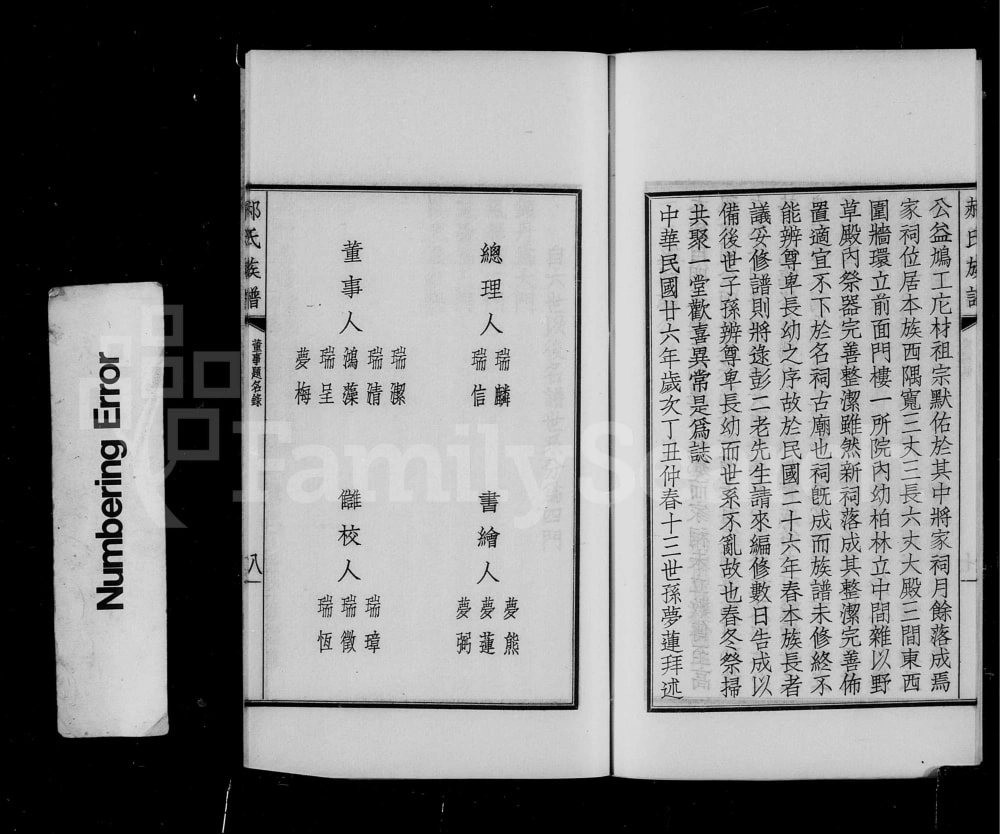 郝氏族譜
公益鳩工庀材祖宗默佑於其中將家祠月餘落成焉
家祠位居本族西隅寬二丈三長六丈大殿三間東西
圍墻環立前面門樓一所院內幼柏林立中間雜以野
草殿內祭器完善整潔雖然新祠落成其整潔完善佈
置適宜不下於名祠古廟也祠既成而族譜未修終不
能辨尊卑長幼之序故於民國二十六年春本族長者
議妥修譜則將逡彭二老先生請來編修數日告成以
備後世子孫辨尊卑長幼而世系不亂故也春冬祭掃
共聚一堂歡喜異常是為誌
中華民國廿六年歲次丁丑仲春十三世孫夢蓮拜述
總理人
瑞麟
瑞信
書繪人
夢熊
夢蓮
夢弼
董事人
瑞潔
瑞清
鴻藻
瑞呈
夢梅
讎校人
瑞璋
瑞徵
瑞恆
郝氏族譜
董事題名錄
八
Numbering Error
FamilySe